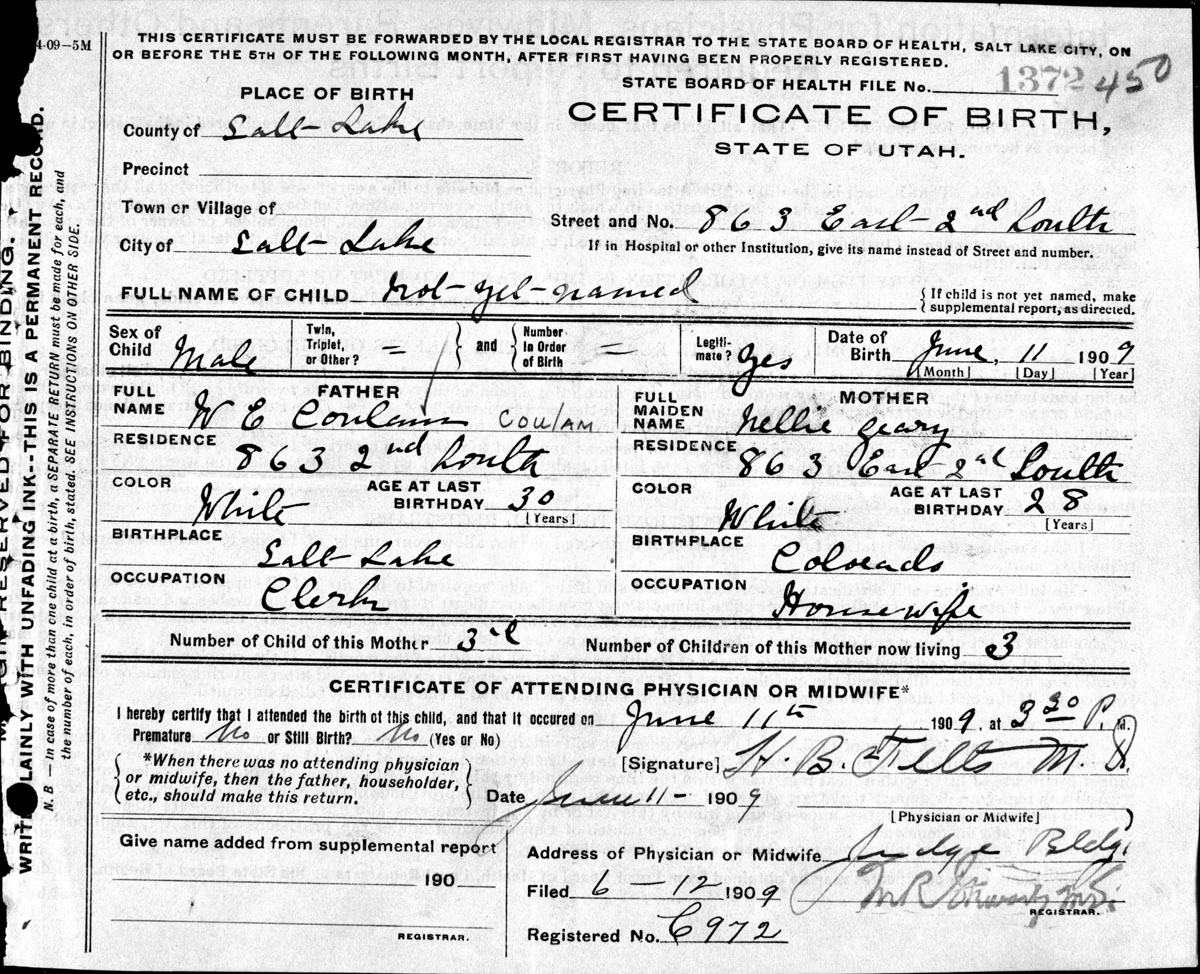 4-09-5M
THIS CERTIFICATE MUST BE FORWARDED BY THE LOCAL REGISTRAR TO THE STATE BOARD OF HEALTH, SALT LAKE CITY, ON
OR BEFORE THE 5TH OF THE FOLLOWING MONTH, AFTER FIRST HAVING BEEN PROPERLY REGISTERED.
STATE BOARD OF HEALTH FILE No. 1372 450
PLACE OF BIRTH
CERTIFICATE OF BIRTH,
STATE OF UTAH.
County of Salt Lake
Precinct
Town or Village of
Street and No. 863 East 2nd South
City of Salt Lake
If in Hospital or other Institution, give its name instead of Street and number.
FULL NAME OF CHILD Not yet named
{If child is not yet named, make
supplemental report, as directed.
Sex of Child Male
Twin, Triplet, or Other? - } and { Number in Order of Birth -
Legitimate? Yes
Date of Birth June, 11 1909
[Month] [Day] [Year]
FATHER
FULL NAME W E Coulam COULAM
RESIDENCE 863 2nd South
COLOR White
AGE AT LAST BIRTHDAY 30
[Years]
BIRTHPLACE Salt Lake
OCCUPATION Clerk
MOTHER
FULL MAIDEN NAME Nellie Geary
RESIDENCE 863 East 2nd South
COLOR White
AGE AT LAST BIRTHDAY 28
[Years]
BIRTHPLACE Colorado
OCCUPATION Housewife
Number of Child of this Mother 3rd
Number of Children of this Mother now living 3
CERTIFICATE OF ATTENDING PHYSICIAN OR MIDWIFE*
I hereby certify that I attended the birth of this child, and that it occured on June 11th 1909, at 3 30 P. M.
Premature No or Still Birth? No (Yes or No)
*When there was no attending physician
or midwife, then the father, householder,
etc., should make this return.
[Signature] H. B. Felts M. D.
Date June 11 - 1909
[Physician or Midwife]
Give name added from supplemental report
190
REGISTRAR.
Address of Physician or Midwife Judge Bldg.
Filed 6 - 12 1909
REGISTRAR.
Registered No. C972
MARGIN RESERVED FOR BINDING.
WRITE PLAINLY WITH UNFADING INK--THIS IS A PERMANENT RECORD.
N. B - In case of more than one child at a birth, a SEPARATE RETURN must be made for each, and
the number of each, in order of birth, stated. SEE INSTRUCTIONS ON OTHER SIDE.